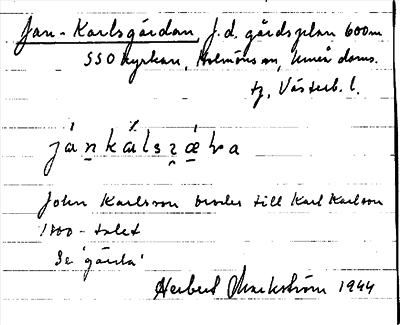 Jan-Karlsgårdan, f.d. gårdsplan 600m
SSO kyrkan, Holmöns sn, Umeå doms.
tg, Västerb. l.
John Karlsson broder till Karl Karlson
1800-talet
Se 'gårda'
Herbert Markström 1944